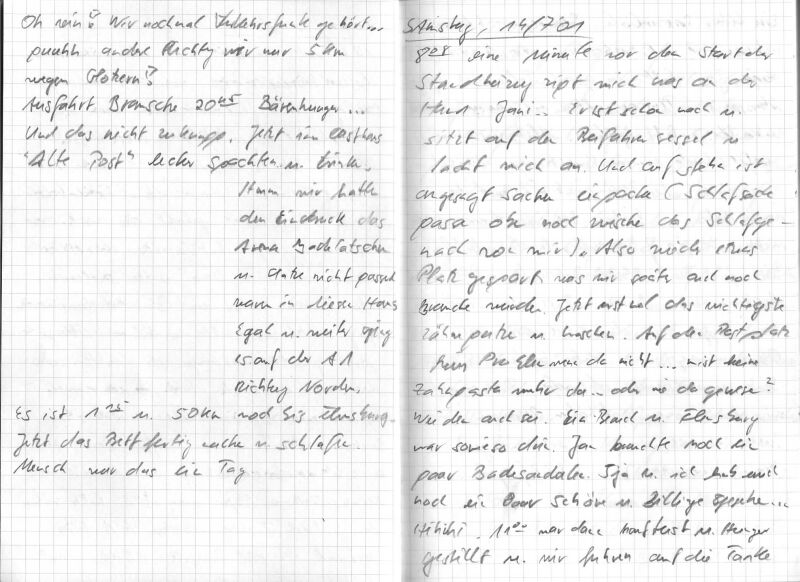 Oh nein! Wir nochmal Verkehrsfunk gehört...
puuhh andre Richtg wir nur 5 km
wegen Glotzern!
Ausfahrt Bramsche 20 45 Bärenhunger...
Und das nicht zu knapp. Jetzt im Gasthaus
"Alte Post" lecker spachteln u. trinken.
Hmm wir hatten
den Eindruck das
Badelatschen
u. nicht passend
waren in diesem Haus
Egal u. weiter ging
es auf der A1
Richtg Norden.
Es ist 1 25 u. 50 km noch bis Flensburg.
Jetzt das Bett fertig machen u. schlafen.
Mensch war das ein Tag
Samstag, 14/7/01
8 28 eine Minute vor dem Start der
Standheizung mich was an der
Hand Jani.. Er ist schon wach u.
sitzt auf dem Beifahrersessel u.
lacht mich an. Und aufstehn ist
angesagt Sachen einpacke (Schlafsäcke
passe oben noch zwische das
nach von mir). Also wieder etwas
Platz gespart was wir später auch noch
Brauche würden. Jetzt erst mal das wichtigste
Zähne putze u. waschen. Auf dem Rastplatz
kein Problem wenn da nicht... mist keine
Zahnpasta mehr da.. oder nie da gewese?
Würden auch sei. Ein Besuch in Flensburg
war sowieso drin. Jan brauchte noch ein
paar Badesandalen. Tja u. ich hab auch
noch ein Paar schöne u. Billige gesehe...
Hihihi. 11 00 war dann u. Hunger
gestillt u. wir fuhren auf die Tanke